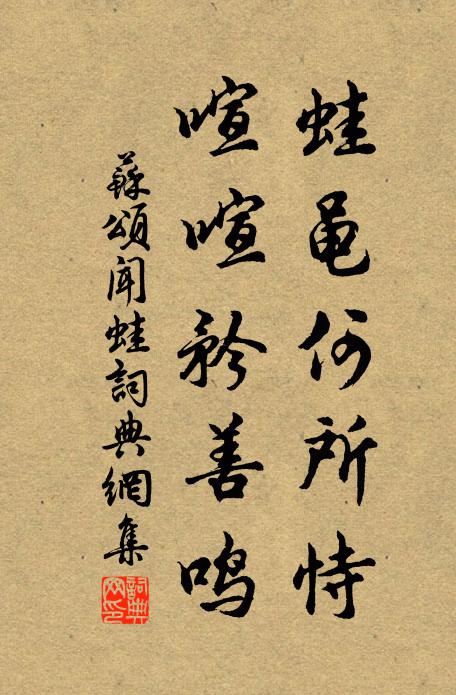 蛙黾何所恃
喧喧矜善鸣
蘇頌聞蛙詞典網集
詞典网印